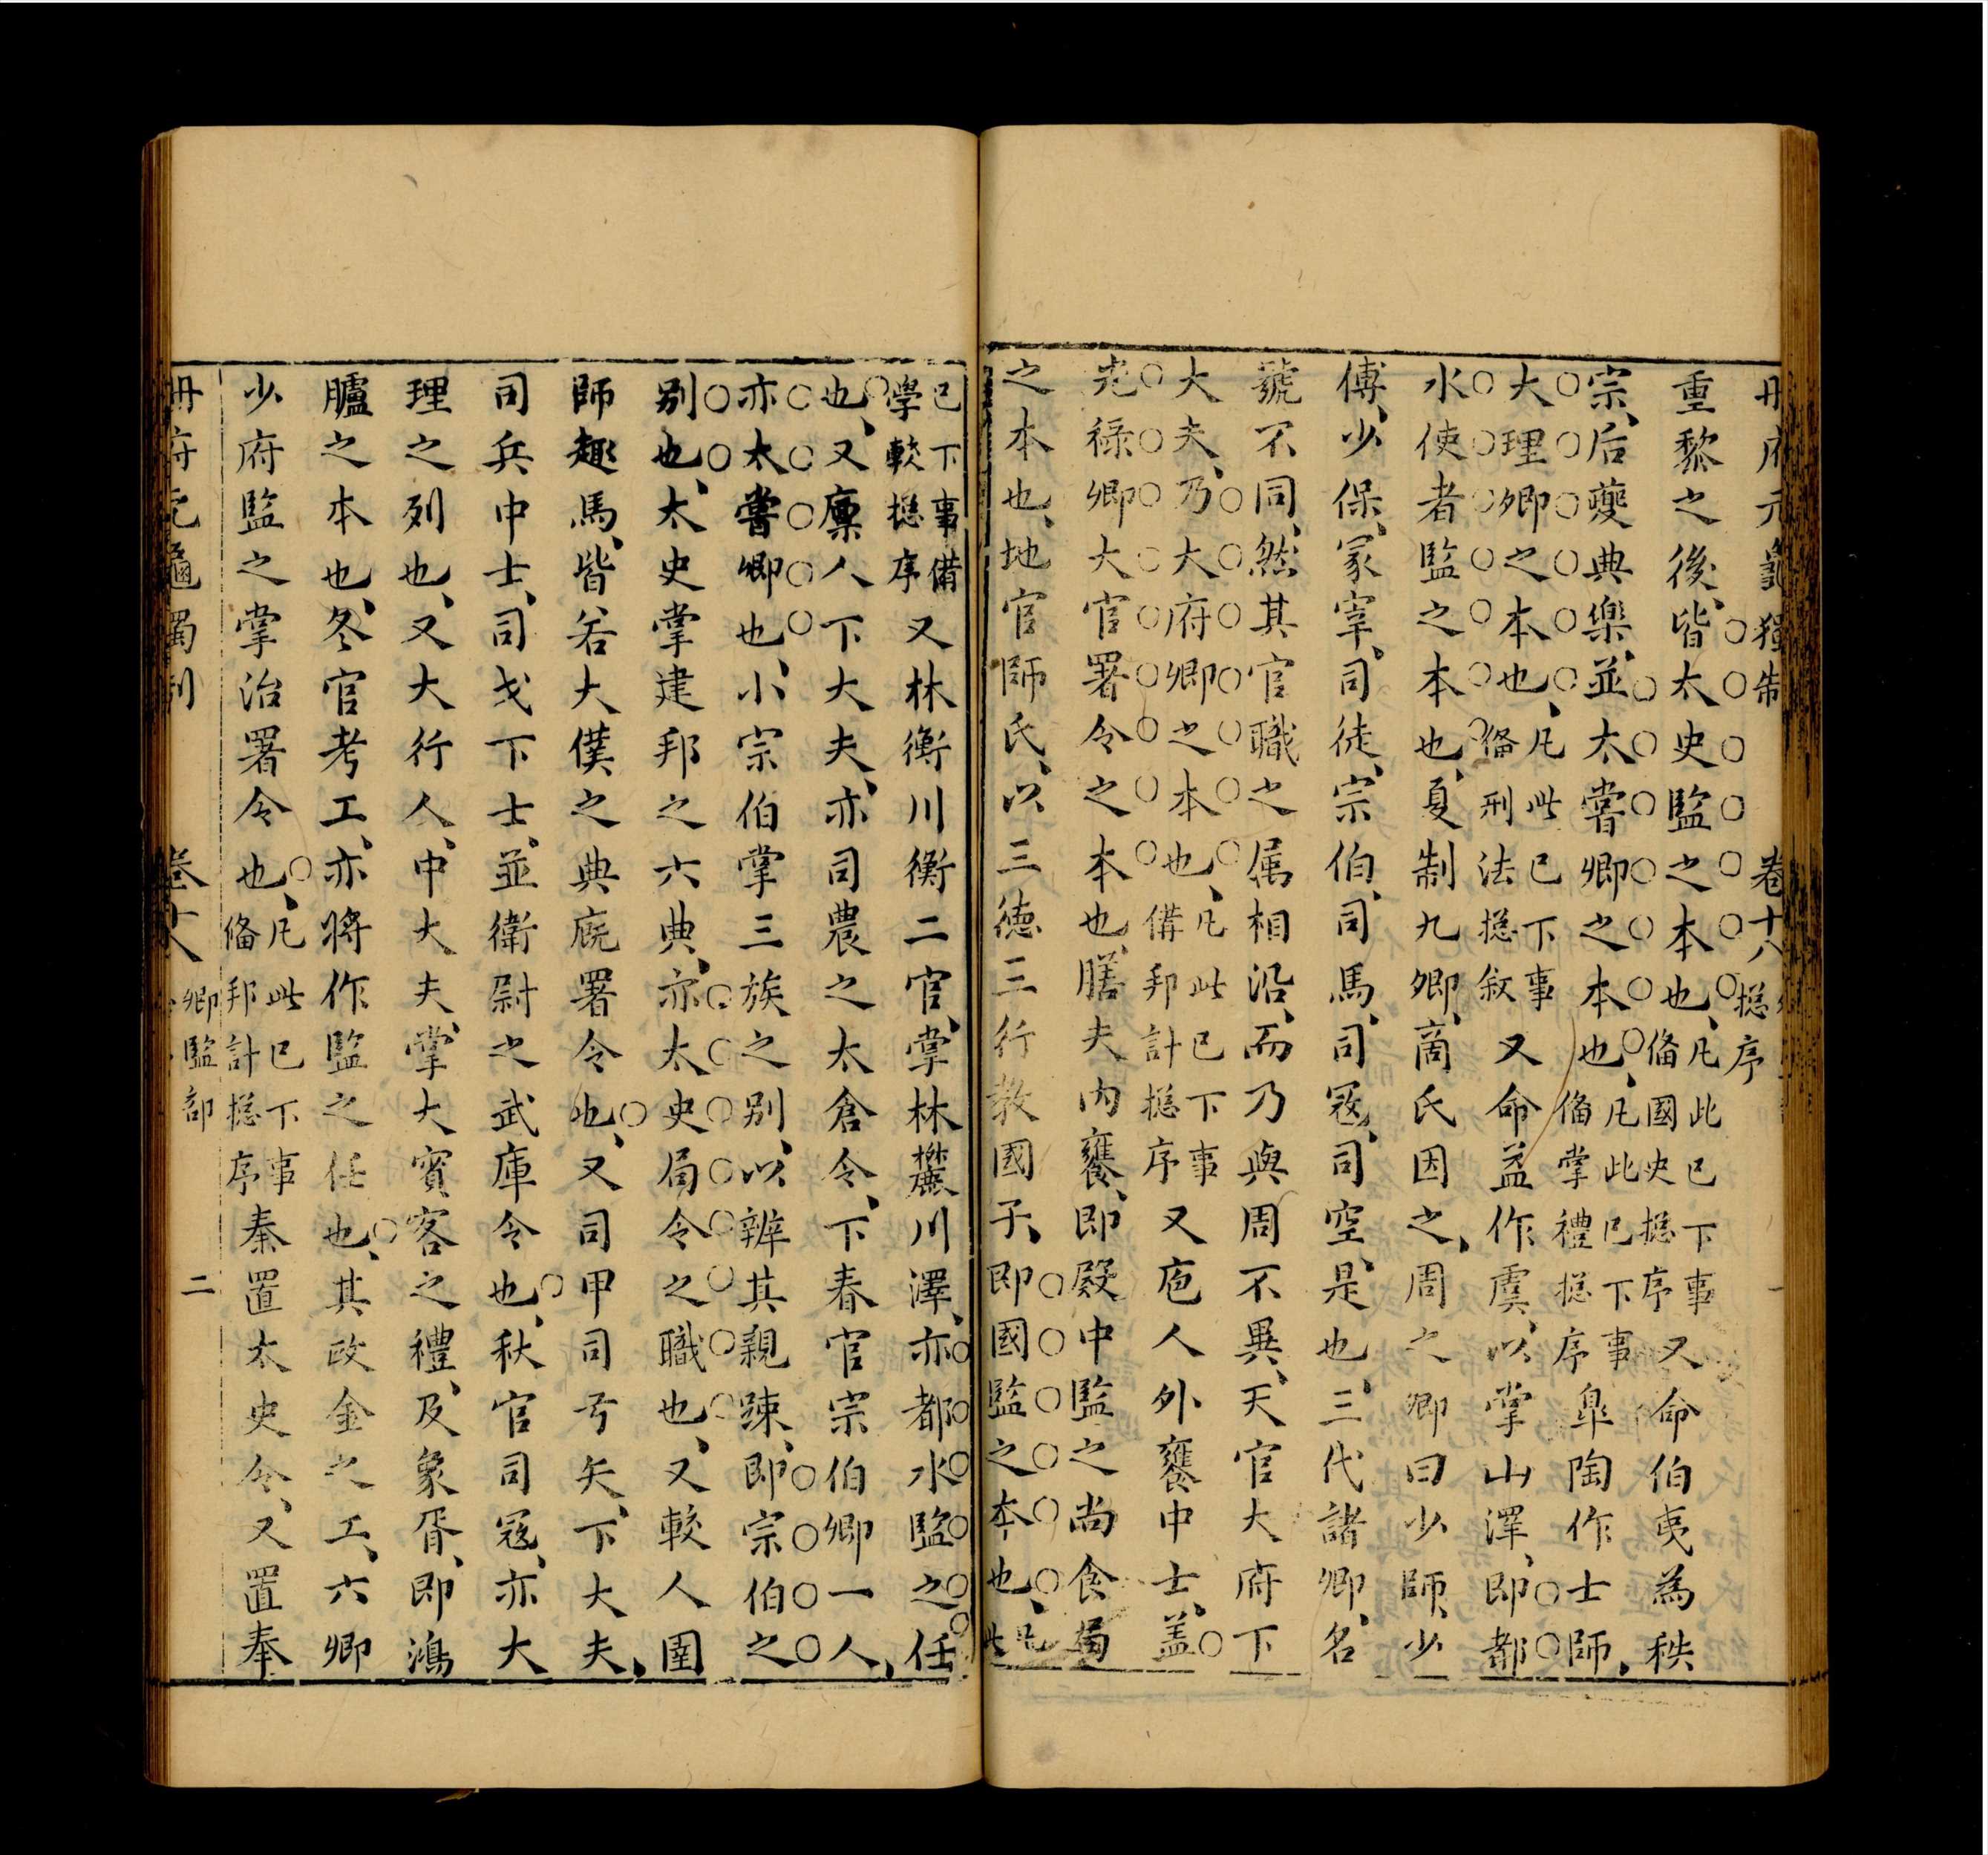 冊府元龜獨制 卷十八 總序 一
重黎之後、皆太史監之本也、凡此已下事備國史總序又命伯夷為秩
宗、后夔典樂、並太嘗卿之本也、凡此已下事備掌禮總序皐陶作士師、
大理卿之本也、凡此已下事備刑法總敘又命益作虞、以掌山澤、即都
水使者監之本也、夏制九卿、商氏因之、周之卿曰少師、少
傅、少保、冡宰、司徒、宗伯、司馬、司冦、司空、是也、三代諸卿、名
號不同、然其官職之属相沿、而乃與周不異、天官大府下
大夫、乃大府卿之本也、凡此已下事備邦計總序又庖人外饔中士、盖
光禄卿大官署令之本也、膳夫内饔、即殿中監之尚食局
之本也、地官師氏、以三德三行教國子、即國監之本也、凡此
已下事備學較總序又林衡川衡二官、掌林麓川澤、亦都水監之任
也、又廩人下大夫、亦司農之太倉令、下春官宗伯卿一人、
亦太嘗卿也、小宗伯掌三族之别、以辨其親踈、即宗伯之
别也、太史掌建邦之六典、亦太史局令之職也、又較人圉
師趣馬、皆若大僕之典廐署令也、又司甲司弓矢、下大夫、
司兵中士、司戈下士、並衛尉之武庫令也、秋官司冦、亦大
理之列也、又大行人、中大夫、掌大賓客之禮、及象胥、即鴻
臚之本也、冬官考工、亦將作監之任也、其政金之工、六卿
少府監之掌治署令也、凡此已下事備邦計總序秦置太史令、又置奉
冊府元龜獨制 卷十八 卿監部 二